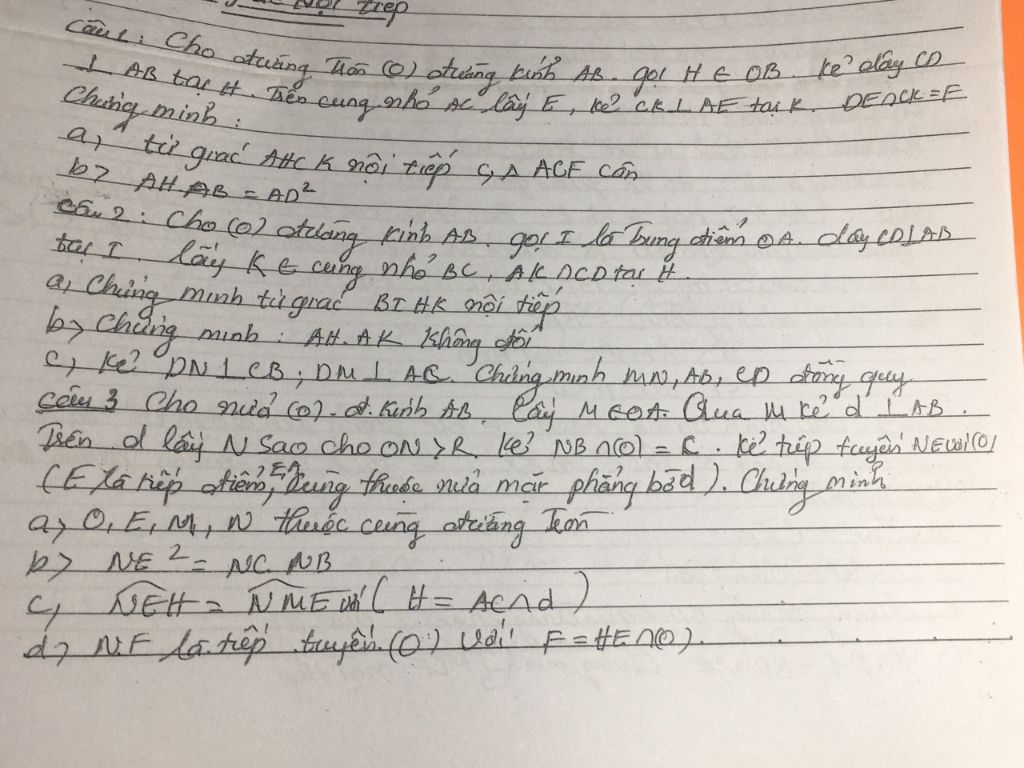 Nội tiếp
Câu 1: Cho đường tròn (O) đường kính AB. gọi H ∈ OB. kẻ dây CD
⊥ AB tại H. Trên cung nhỏ AC lấy E, kẻ CK ⊥ AE tại K. DE∩CK=F
Chứng minh:
a, tứ giác AHCK nội tiếp c, Δ ACF cân
b> AH.AB = AD²
Câu 2: Cho (O) đường kính AB. gọi I là trung điểm OA. dây CD⊥AB
tại I. lấy K ∈ cung nhỏ BC, AK∩CD tại H.
a, Chứng minh tứ giác BIHK nội tiếp
b> Chứng minh: AH.AK không đổi
c, kẻ DN⊥CB; DM⊥AC. Chứng minh MN, AB, CD đồng quy.
Câu 3 Cho nửa (O). đ. kính AB. Lấy M∈OA. Qua M kẻ d ⊥ AB.
Trên d lấy N sao cho ON > R. kẻ NB∩(O) = C. kẻ tiếp tuyến NE với (O)
(E là tiếp điểm, E,A cùng thuộc nửa mặt phẳng bờ d). Chứng minh
a> O, E, M, N thuộc cùng đường tròn
b> NE² = NC.NB
c, NEH = NME với (H = AC∩d)
d> NF là tiếp tuyến (O) với F = HE∩(O).